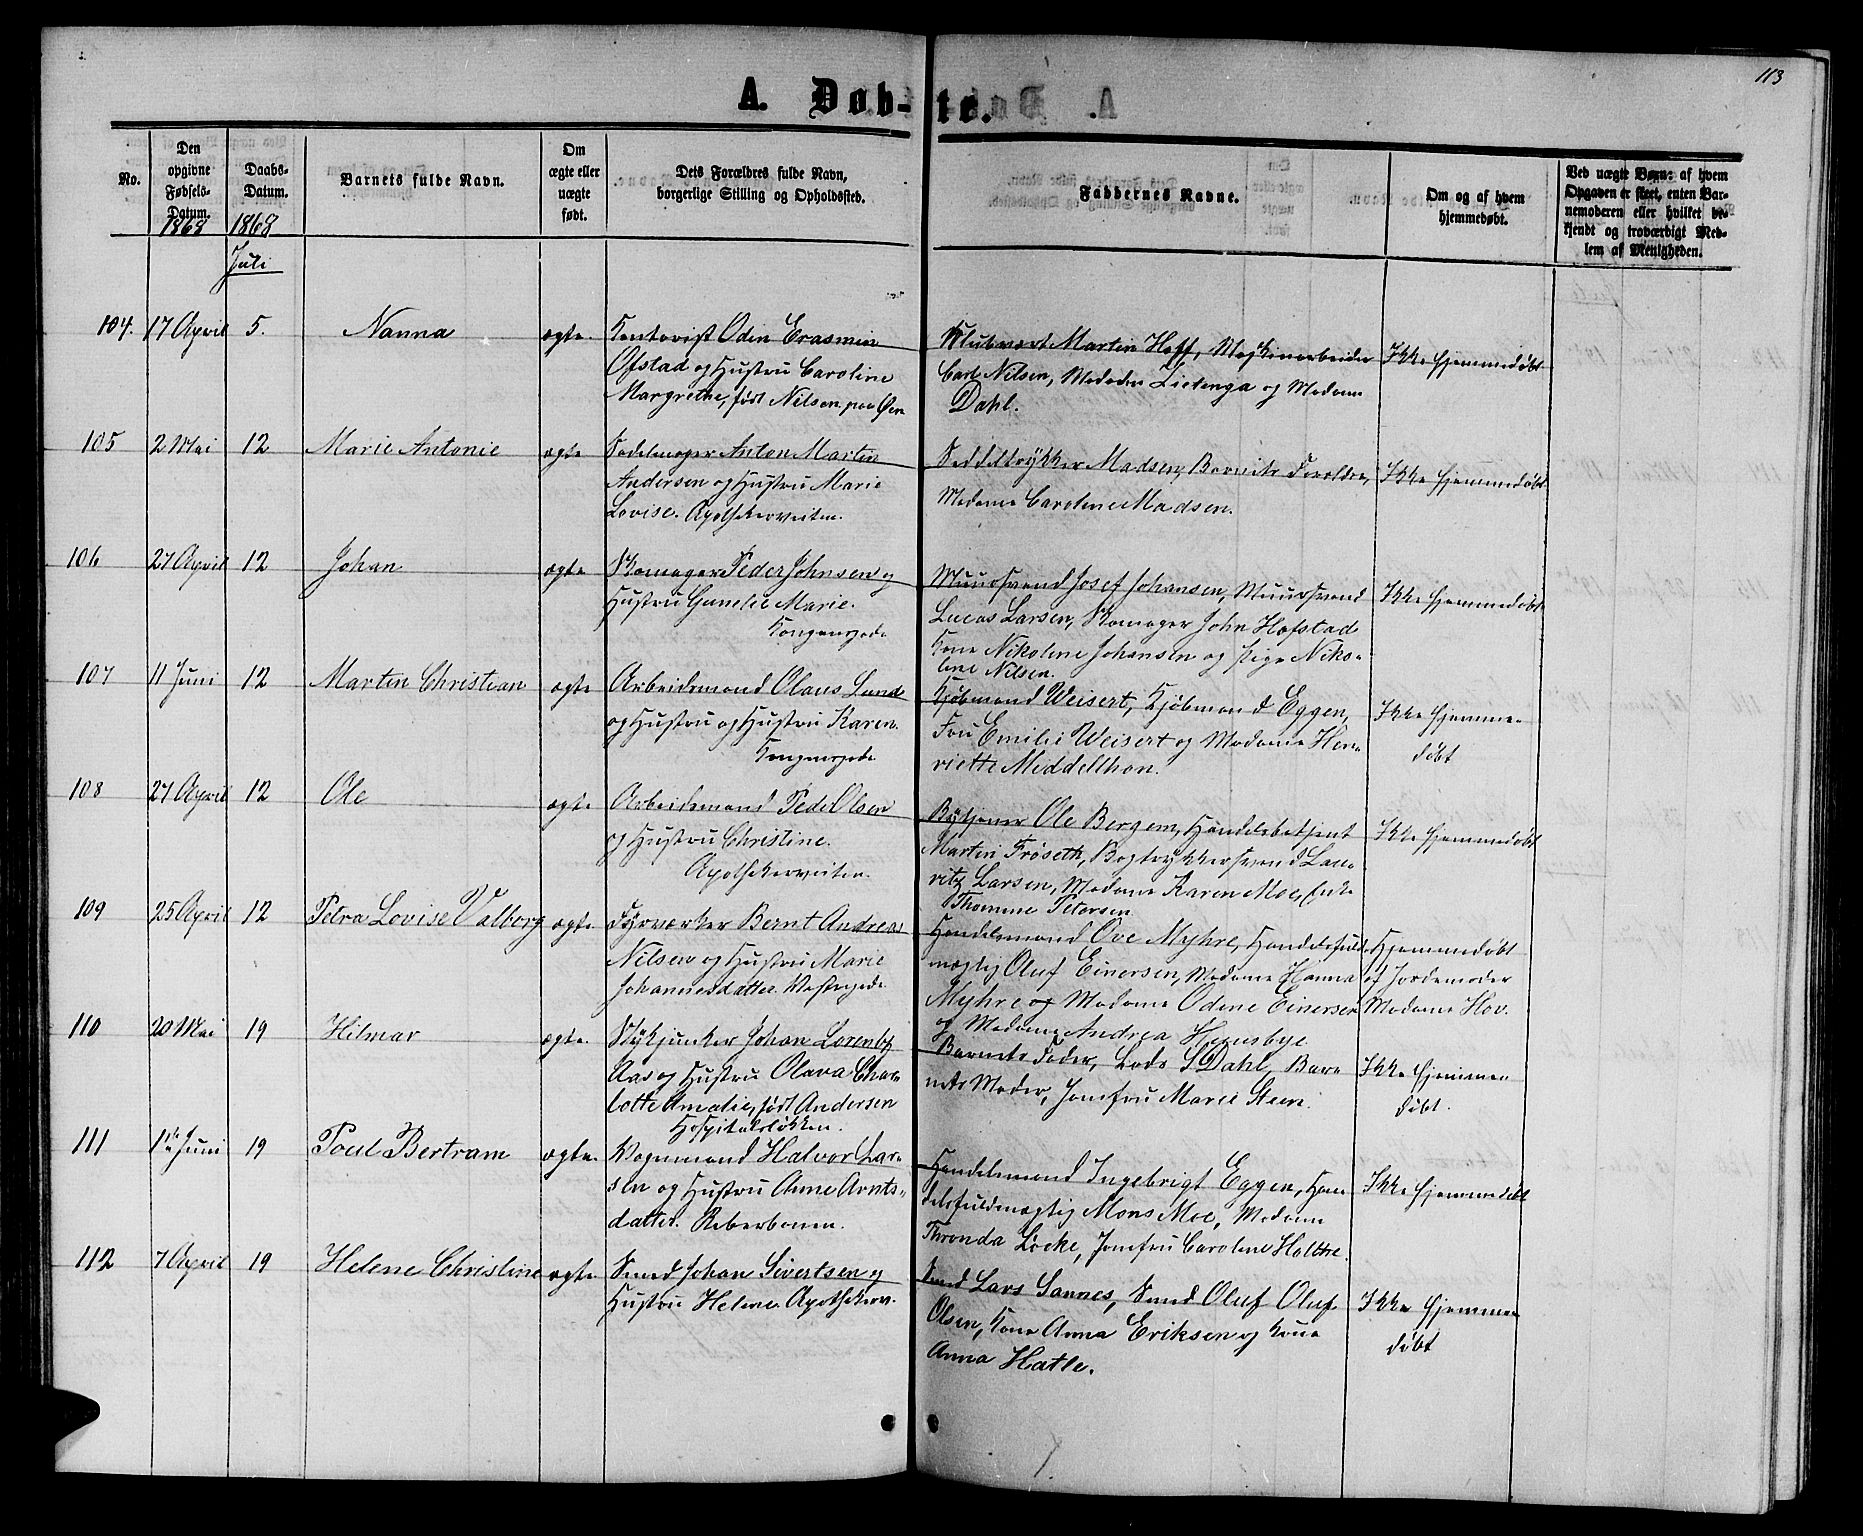 113
A. Døb-
te.
No.
Den
opgivne
Fødsels-
Datum.
1868
Daabs-
Datum.
1868
Juli
Barnets fulde Navn.
Om
ægte eller
uægte
født.
Dets Forældres fulde Navn,
borgerlige Stilling og Opholdssted.
Faddernes Navne.
Om og af hvem
hjemmedøbt.
Ved uægte Børn: af hvem
Opgaven er skeet, enten Bar-
nemoderen eller hvilket be-
kjendt og troværdigt Med-
lem af Menigheden.
104. 17 April 5. Nanna ægte.
Kontorist Odin Erasmin
Ofstad og Hustru Caroline
Margrethe, født Nilsen paa Øen
Klubvært Martin Hoff, Maskinarbeider
Carl Nilsen, Madame Lietenga og Madame
Dahl.
Ikke hjemmedøbt
105 2 Mai 12 Marie Antonie ægte
Sadelmager Anton Martin
Andersen og Hustru Marie
Lovise. Apothekerveiten.
Seddeltrykker Madsen, Barnets Forældre,
Madame Caroline Madsen.
Ikke hjemmedøbt
106 27 April 12 Johan ægte
Skomager Peder Johnsen og
Hustru Gunelie Marie.
Kongensgade
Muursvend Josef Johansen, Muursvend
Lucas Larsen, Skomager John Hofstad
Kone Nikoline Johansen og Pige Niko-
line Nilsen.
Ikke hjemmedøbt
107 11 Juni 12 Martin Christian ægte
Arbeidsmand Olaus Lund
og Hustru og Hustru Karen.
Kongensgade
Kjøbmand Weisert, Kjøbmand Eggen,
Fru Emilie Weisert og Madame Hen-
riette Middelthon.
Ikke hjemme-
døbt
108 27 April 12 Ole ægte
Arbeidsmand Peder Olsen
og Hustru Christine.
Apothekerveiten.
Bytjener Ole Bergem, Handelsbetjent
Martin Frøseth, Bogtrykkersvend Lau-
ritz Larsen, Madame Karen Moe, Enke
Thomine Petersen
Ikke hjemmedøbt
109 25 April 12 Petra Lovise Valborg ægte
Fyrværker Bernt Andreas
Nilsen og Hustru Marie
Johannesdatter. Vestregade
Handelsmand Ove Myhre, Handelsfuld-
mægtig Oluf Einersen, Madame Hanna
Myhre og Madame Odine Einersen
og Madame Andrea Hernsbye
Hjemmedøbt
af Jordemoder
Madame Hov.
110 20 Mai 19 Hilmar ægte.
Stykjunker Johan Lorentz
Aas og Hustru Olava Char-
lotte Amalie, født Andersen
Hospitalsløkken.
Barnets Fader, Lods S Dahl, Bar-
nets Moder, Jomfru Marie Steen.
Ikke hjemme-
døbt.
111 1ste Juni 19 Poul Bertram ægte.
Vognmand Halvor Lar-
sen og Hustru Anne Arnts-
datter. Reberbanen.
Handelsmand Ingebrigt Eggen, Han-
delsfuldmægtig Mons Moe, Madame
Thronda Løcke, Jomfru Caroline Holthe.
Ikke hjemmedøbt
112 7 April 19 Helene Christine ægte
Smed Johan Sivertsen og
Hustru Helene. Apothekerv.
Smed Lars Sannes, Smed Oluf Oluf
Olsen, Kone Anna Eriksen og Kone
Anna Hatle.
Ikke hjemme-
døbt